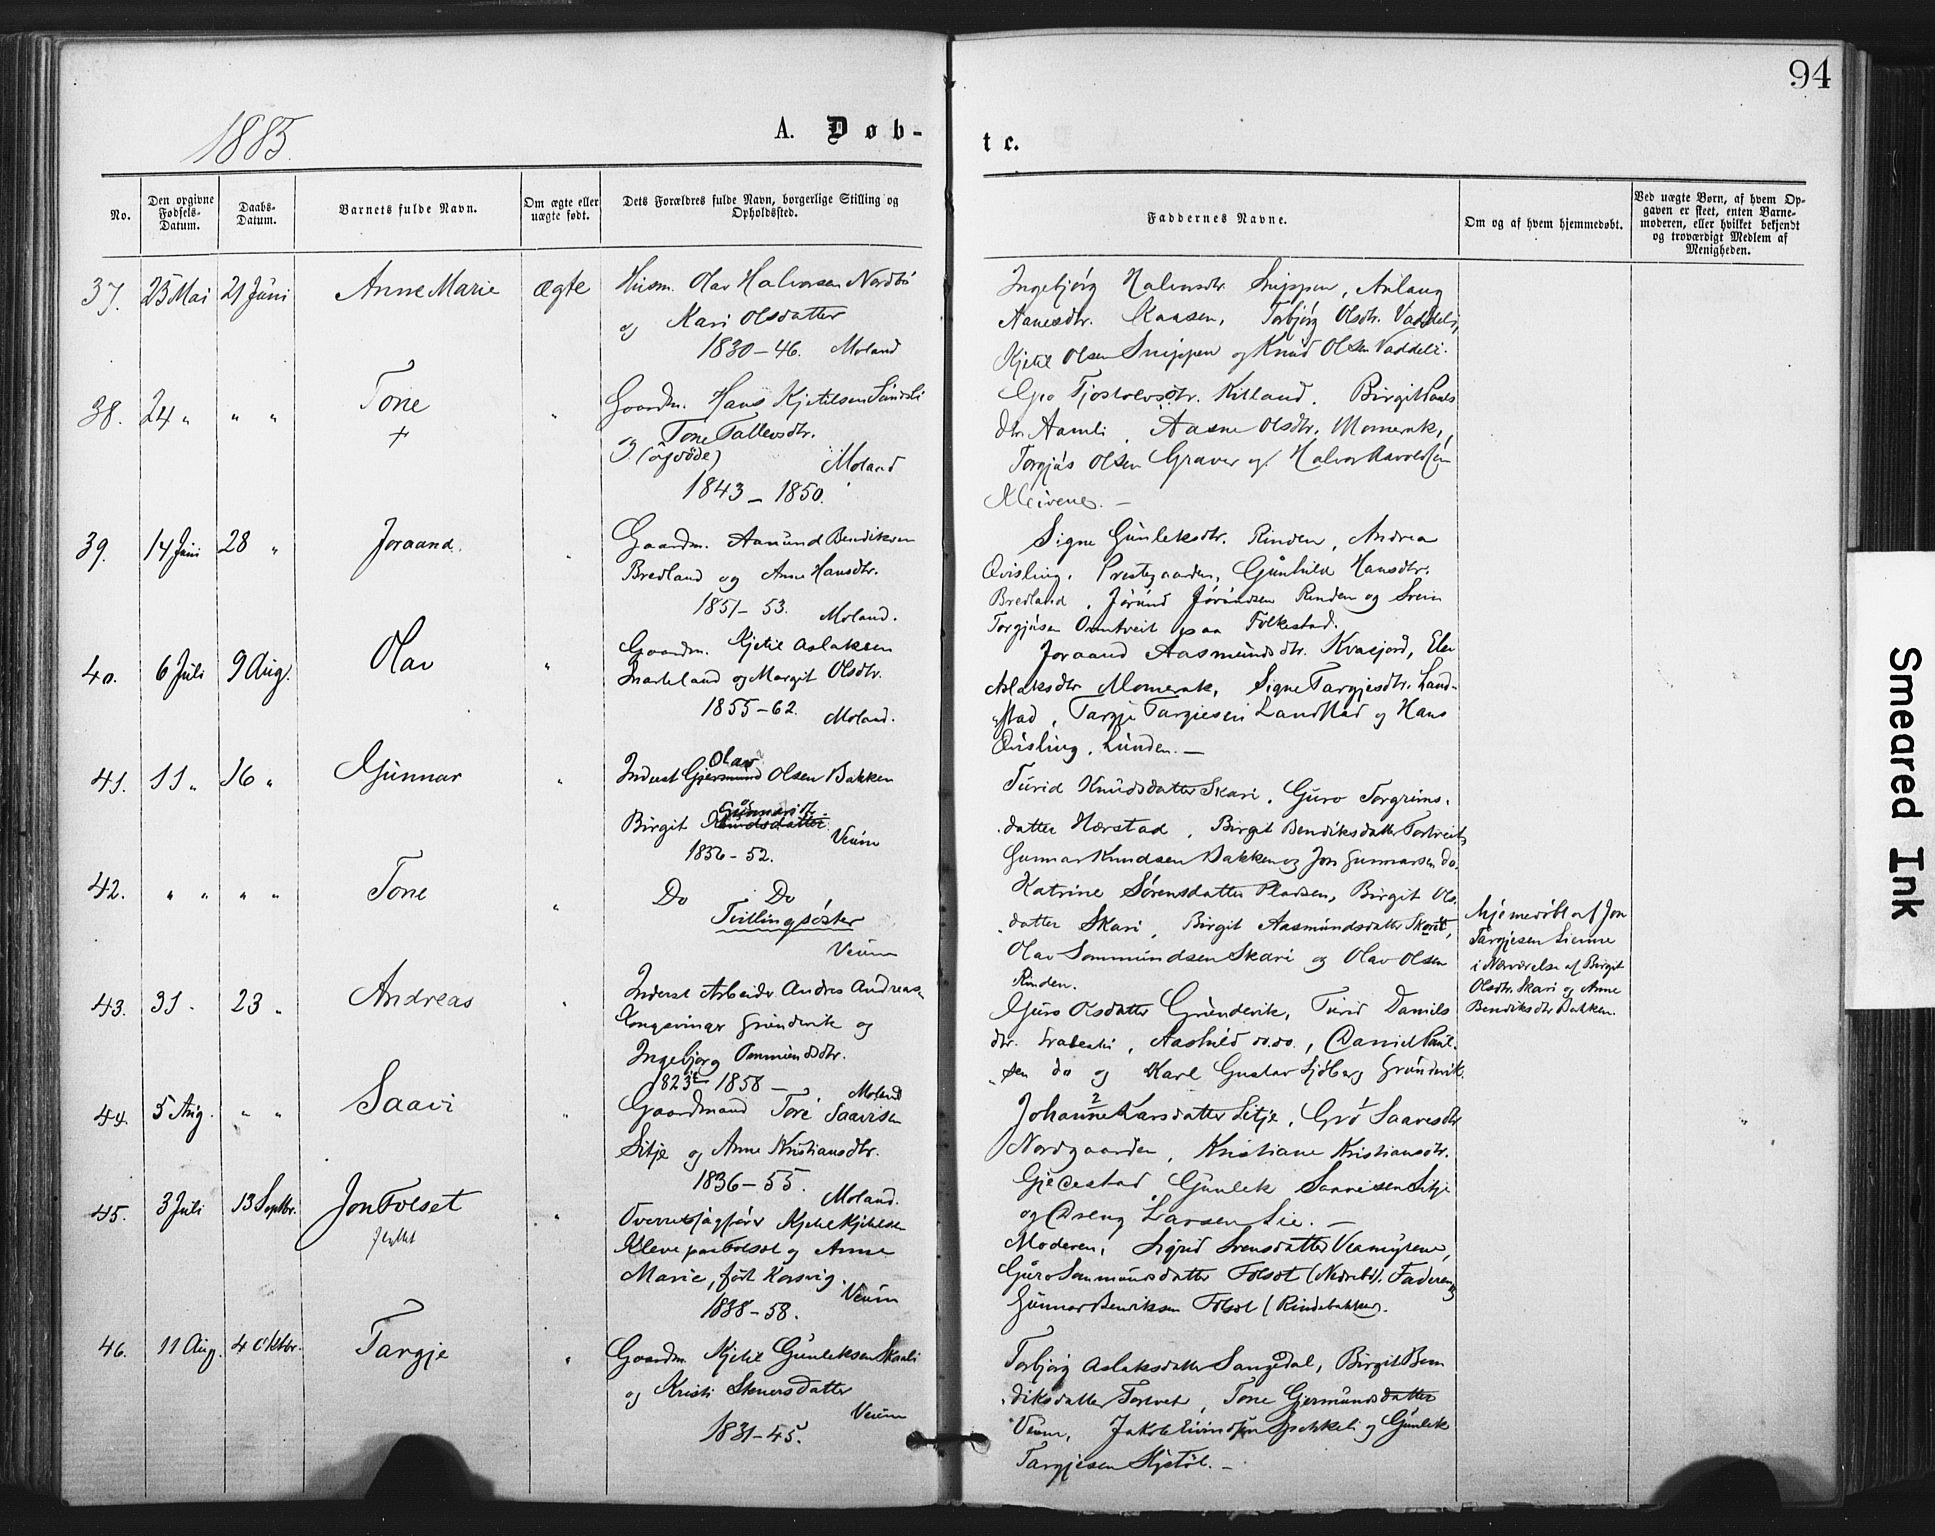 94
1885.
A. Døb-
te.
No.
Den opgivne Fødsels-Datum.
Daabs-Datum.
Barnets fulde Navn.
Om ægte eller uægte født.
Dets Forældres fulde Navn, borgerlige Stilling og Opholdssted.
Faddernes Navne.
Om og af hvem hjemmedøbt.
Ved uægte Børn, af hvem Opgaven er skeet, enten Barnemoderen, eller hvilket bekjendt og troværdigt Medlem af Menigheden.
37. 23 Mai 21 Juni Anne Marie ægte Husm. Olav Halvorsen Nordbø
og Kari Olsdatter
1830-46. Moland
Ingebjørg Halvorsdtr. Snippen, Aslaug
Aanesdtr. Kaasen, Torbjørg Olsdtr. Vaddeli,
Kjetil Olsen Snippen og Knud Olsen Vaddeli.
38. 24 " " " Tone " Gaardm. Hans Kjetilsen Sundli
+
og Tone Tallevsdtr.
Moland
1843 - 1850.
Gro Tjostolvsdtr. Killand. Birgit
dtr. Aamli, Aasne Olsdtr. Momrak,
Torgjus Olsen Graver og Halvor
Kleivene. -
39. 14 Juni 28 " Joraand. " Gaardm. Aamund Bendiksen
Bredland og Anne Hansdtr.
1851-53. Moland.
Signe Gunleksdtr. Rinden, Andrea
Qvisling, Prestegaarden, Gunhild Hansdtr.
Bredland, Jørund Jørundsen Rinden og Svein
Torgjusen Omtveit paa Folkestad.
40. 6 Juli 9 Aug. Olav " Gaardm. Kjetil Aslaksen
og Margit Olsdtr.
1855-62. Moland.
Joraand Aasmundsdtr. Kvasjord,
Aslaksdtr Momrak, Signe Targjesdtr. Land-
stad, Targje Targjesen Landstad og Hans
Qvisling, Lunden. -
41. 11 " 16 " Gunnar " Inderst Gjermund Olav Olsen Bakken
Birgit Knudsdatter Gunnarsd. Veum
1856-52.
Turid Knudsdatter Skari, Guro Torgrims-
datter Hærstad, Birgit Bendiksdatter Tortveit,
Gunnar Knudsen Bakken og Jon Gunnarsen do.
42. " " " " Tone " Do Do
Tvillingsøster
Veum
Katrine Sørensdatter Pladsen, Birgit Ols-
datter Skari, Birgit Aasmundsdatter
Olav Sommundsen Skari og Olav Olsen
Rinden.
hjemedøbt af Jon
Targjesen Lienne
i Nærværelse af Birgit
Olsdtr. Skari og Anne
Bendiksdtr Bakken.
43. 31 " 23 " Andreas " Inderst Arbeider Andres Andreas-
Kongsvinger Grundevik og
Ingebjørg Ommundsdtr.
1823 - 1858 - Moland
Guro Olsdatter Grundevik, Turid Daniels
dtr. , Aashild do.do., Daniel Paul-
sen do og Karl Gustav Sjöberg Grundevik.
44. 5 Aug. " " Saavi " Gaardmand Tore Saavisen
Sitje og Anne Kristiansdtr.
1836-55. Moland.
Johanne Larsdatter Sitje, Gro Saavesdtr
Nordgaarden, Kristiane Kristiansdtr.
Gjelestad, Gunlek Saavesen Sitje
og Dreng Larsen Lie. -
45. 3 Juli 13 Septbr. Jon Folset " Overretssagfører Kjetil Kjetilsen
flyttet
Kleve paa Folsot og Anne
Marie, født Korsvig.
1838-58. Veum
Moderen, Sigrid Svensdatter Veamyrene,
Guro Sommundsdatter Folsot (Nedrebø), Faderen og
Gunnar Henriksen Folsot (Rindebakken).
46. 11 Aug. 4 Oktbr. Targje " Gaardm. Kjetil Gunleksen Skaali
og Kristi Steinersdatter
Veum
1831-45.
Torbjørg Aslaksdatter Sangedal, Birgit Ben
diksdatter Tortvet, Tone Gjermundsdatter
Veum, Jakob Eivindsen Spokkeli og Gunlek
Targjesen Hjetøl. -
Smeared Ink